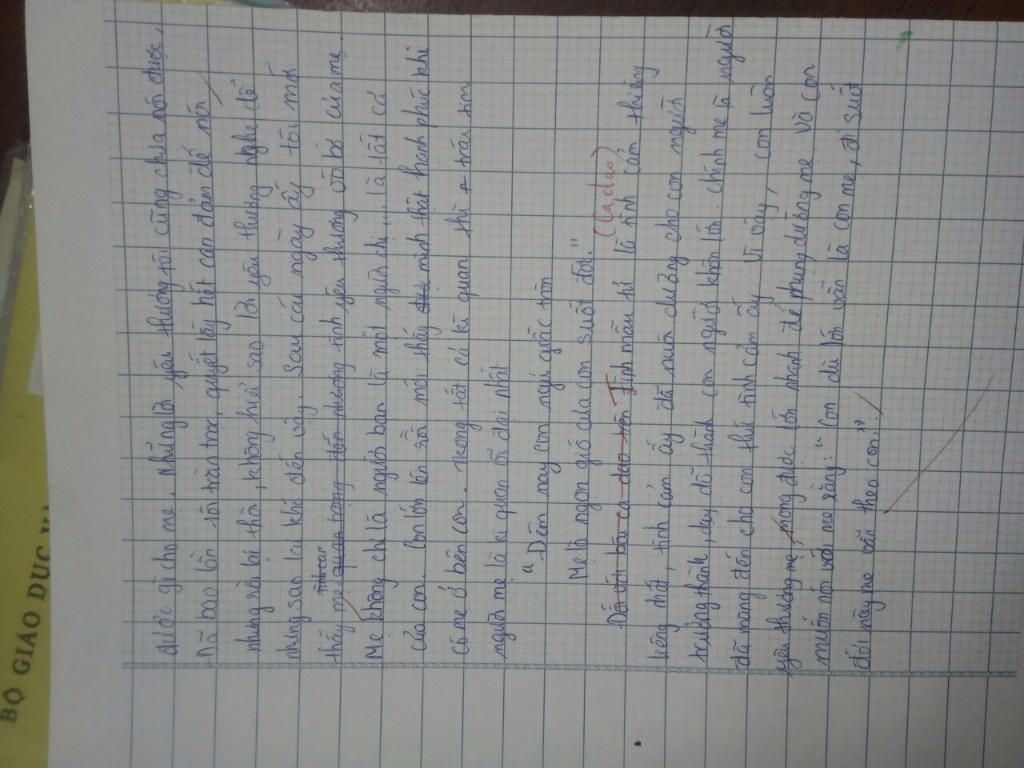 được gì cho mẹ. Những lời yêu thương tôi cũng chưa nói được.
Đã bao lần tôi trằn trọc, quyết lấy hết can đảm để nói
nhưng rồi lại thôi, không hiểu sao lời yêu thương nghe dễ
nhưng sao lại khó đến vậy. Sau cái ngày ấy tôi mới
thấy mẹ tình yêu thương vô bờ của mẹ.
Mẹ không chỉ là người bạn là một người chị.... là tất cả
của con. Con lớn lên rồi mới thấy mình thật hạnh phúc khi
có mẹ ở bên con. Trong tất cả kì quan thì trái tim
người mẹ là kì quan vĩ đại nhất
"Đêm nay con ngủ giấc tròn
Mẹ là ngọn gió của con suốt đời."
(Ca dao)
Tình mẫu tử là tình cảm thiêng
liêng nhất, tình cảm ấy đã nuôi dưỡng cho con người
trưởng thành, dạy dỗ thành con người khôn lớn. Chính mẹ là người
đã mang đến cho con thứ tình cảm ấy. Vì vậy, con luôn
yêu thương mẹ, mong được lớn nhanh để phụng dưỡng mẹ và con
muốn nói với mẹ rằng: "Con dù lớn vẫn là con mẹ, đi suốt
đời này mẹ vẫn theo con."
BỘ GIÁO DỤC VÀ